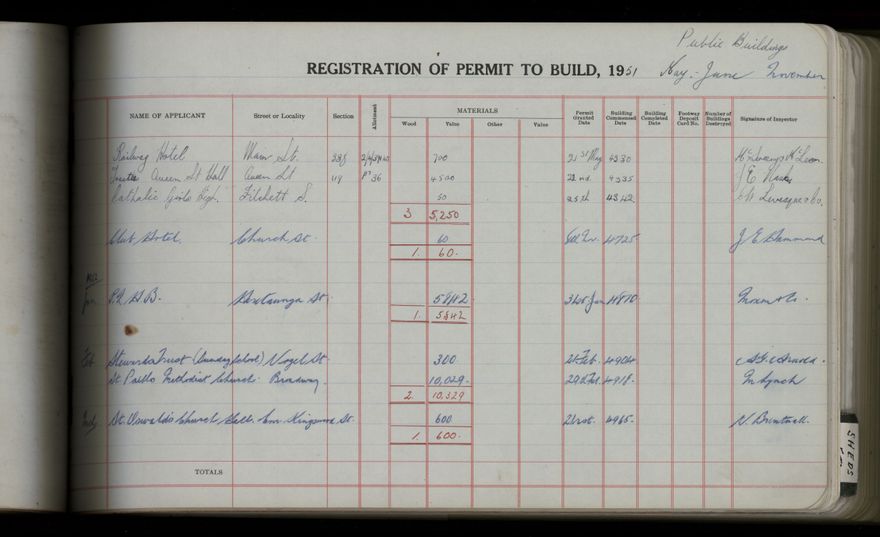 Public Buildings
REGISTRATION OF PERMIT TO BUILD, 1951 May - June November
NAME OF APPLICANT Street or Locality Section Allotment MATERIALS Permit Granted Date Building Commenced Date Building Completed Date Footway Deposit Card No. Number of Buildings Destroyed Signature of Inspector
Wood Value Other Value
Railway Hotel Main St. 700 21st May 4330
Queen St Hall Queen St 119 36 4500 22nd 4335
Catholic Girls High Fitchett S. 50 25th 4342
3 5,250
Club Hotel Church St. 60 4725 J E Hammond
1. 60.
1952
Jan P.N. H.B. St. 5842 31st Jan 4870
1 5842
Feb Stewards Trust (Sunday School) Vogel St. 300 Feb. 4904
St. Pauls Methodist Church. Broadway. 10,029. 29th Feb. 4918. Lynch
2 10,329
St. Oswalds Church Hall Cnr. Kingswood St. 600 21st. 4965.
1. 600.
TOTALS
SHEDS